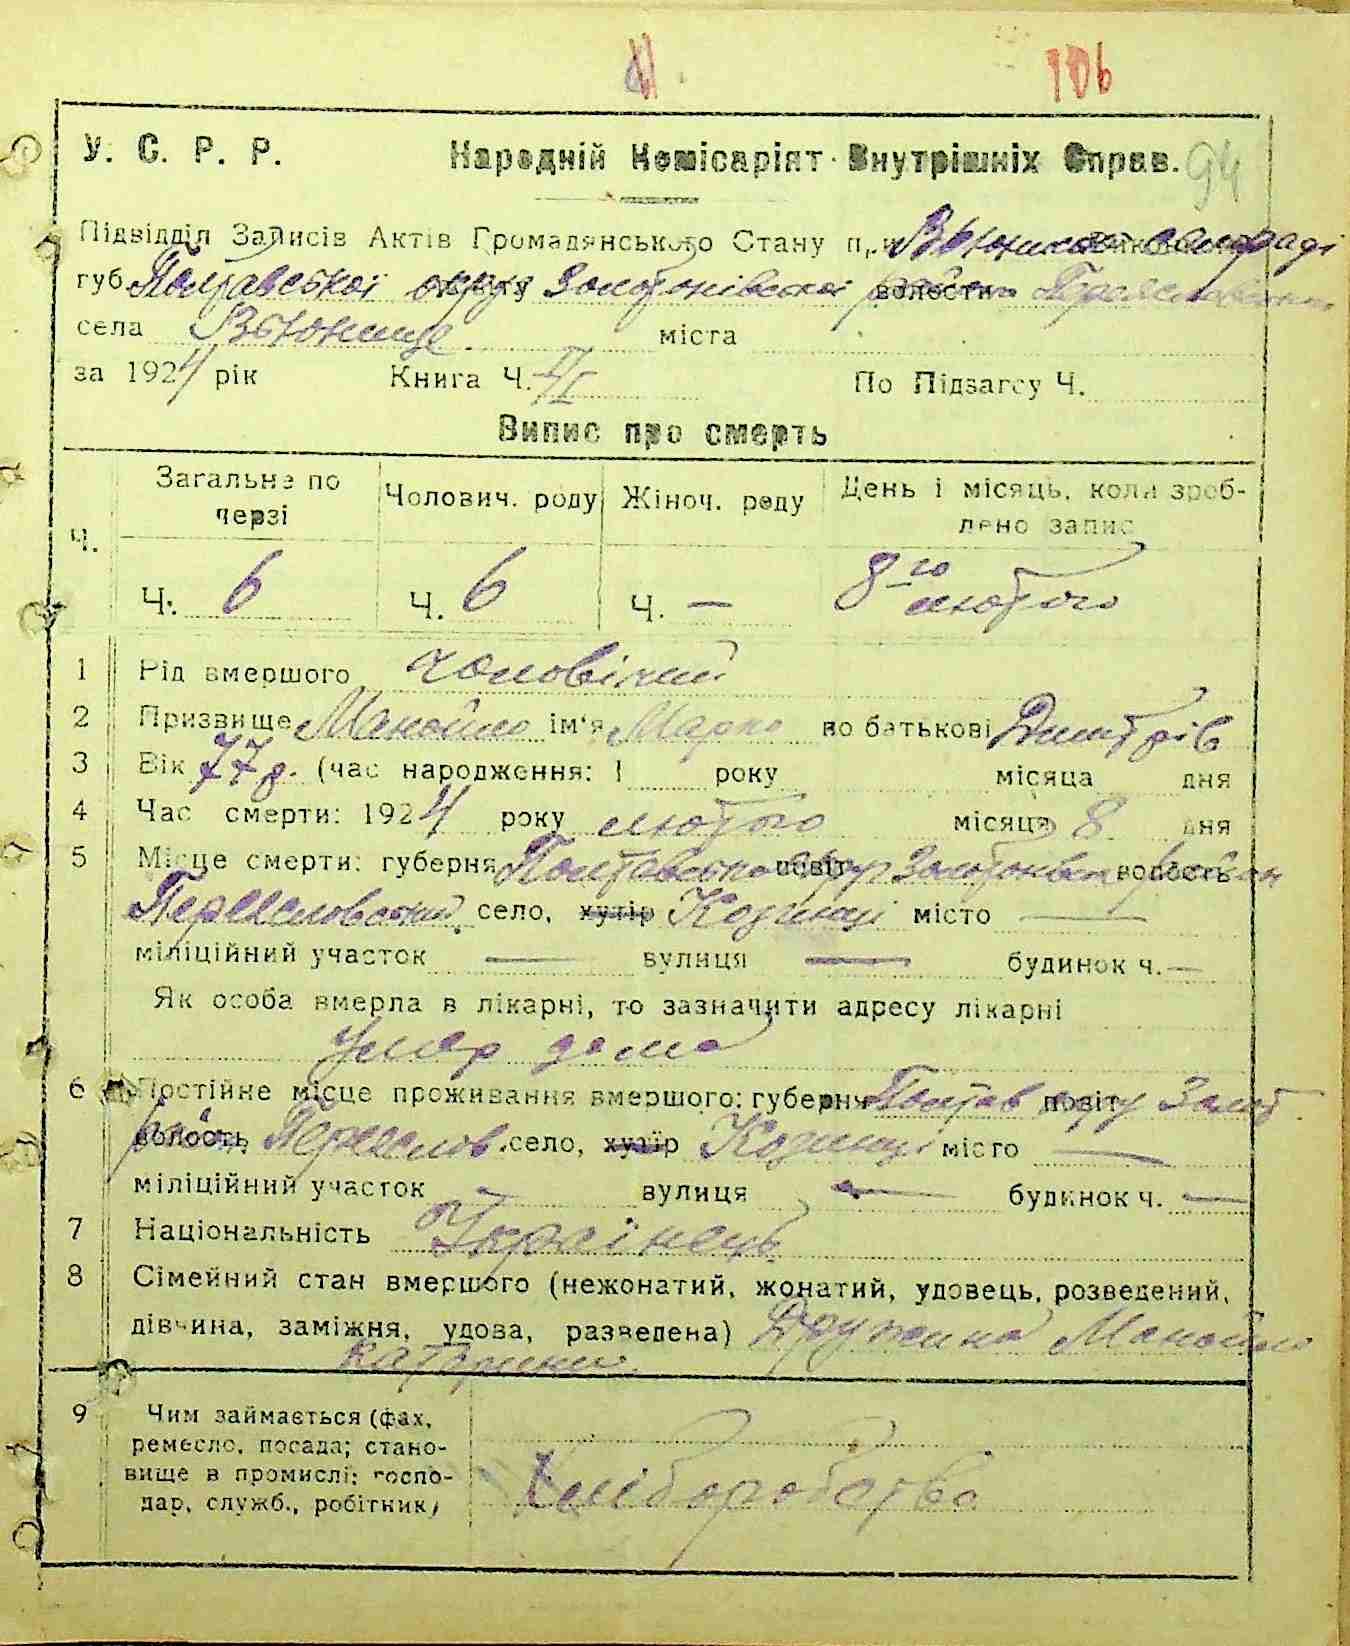 106
У. С. Р. Р. Народній Комісаріят Внутрішніх Справ. 94
Підвідділ Записів Актів Громадянського Стану при Вьюниськ сільраді
губ. Полтавської округ Золотонівської волости
села Вьюнище міста
за 1924 рік Книга Ч. По Підзагсу Ч.
Випис про смерть
Ч. Загальне по черзі Чолович. роду Жіноч. роду День і місяць, коли зроб-
лено запис
Ч. 6 Ч. 6 Ч. — 8го лютого
1 Рід вмершого чоловічий
2 Призвище Манойло ім'я Марко по батькові Дмитрів
3 Вік 77 р. (час народження: 1 року місяца дня
4 Час смерти: 1924 року лютого місяця 8 дня
5 Місце смерти: губерня Полтавська повіт округ Золотонівськ волость район
Переяславський село, хутір Козинці місто —
міліційний участок — вулиця — будинок ч. —
Як особа вмерла в лікарні, то зазначити адресу лікарні
Умер дома
6 Постійне місце проживання вмершого: губерня Полтав повіт окру Золот
волость район Переяслов. село, хутір Козинці місто —
міліційний участок — вулиця — будинок ч. —
7 Національність Українець
8 Сімейний стан вмершого (нежонатий, жонатий, удовець, розведений,
дівчина, заміжня, удова, разведена) Дружина Манойло
Катерина
9 Чим займається (фах,
ремесло, посада; стано-
вище в промислі: госпо-
дар, служб., робітник)
Хліборобство